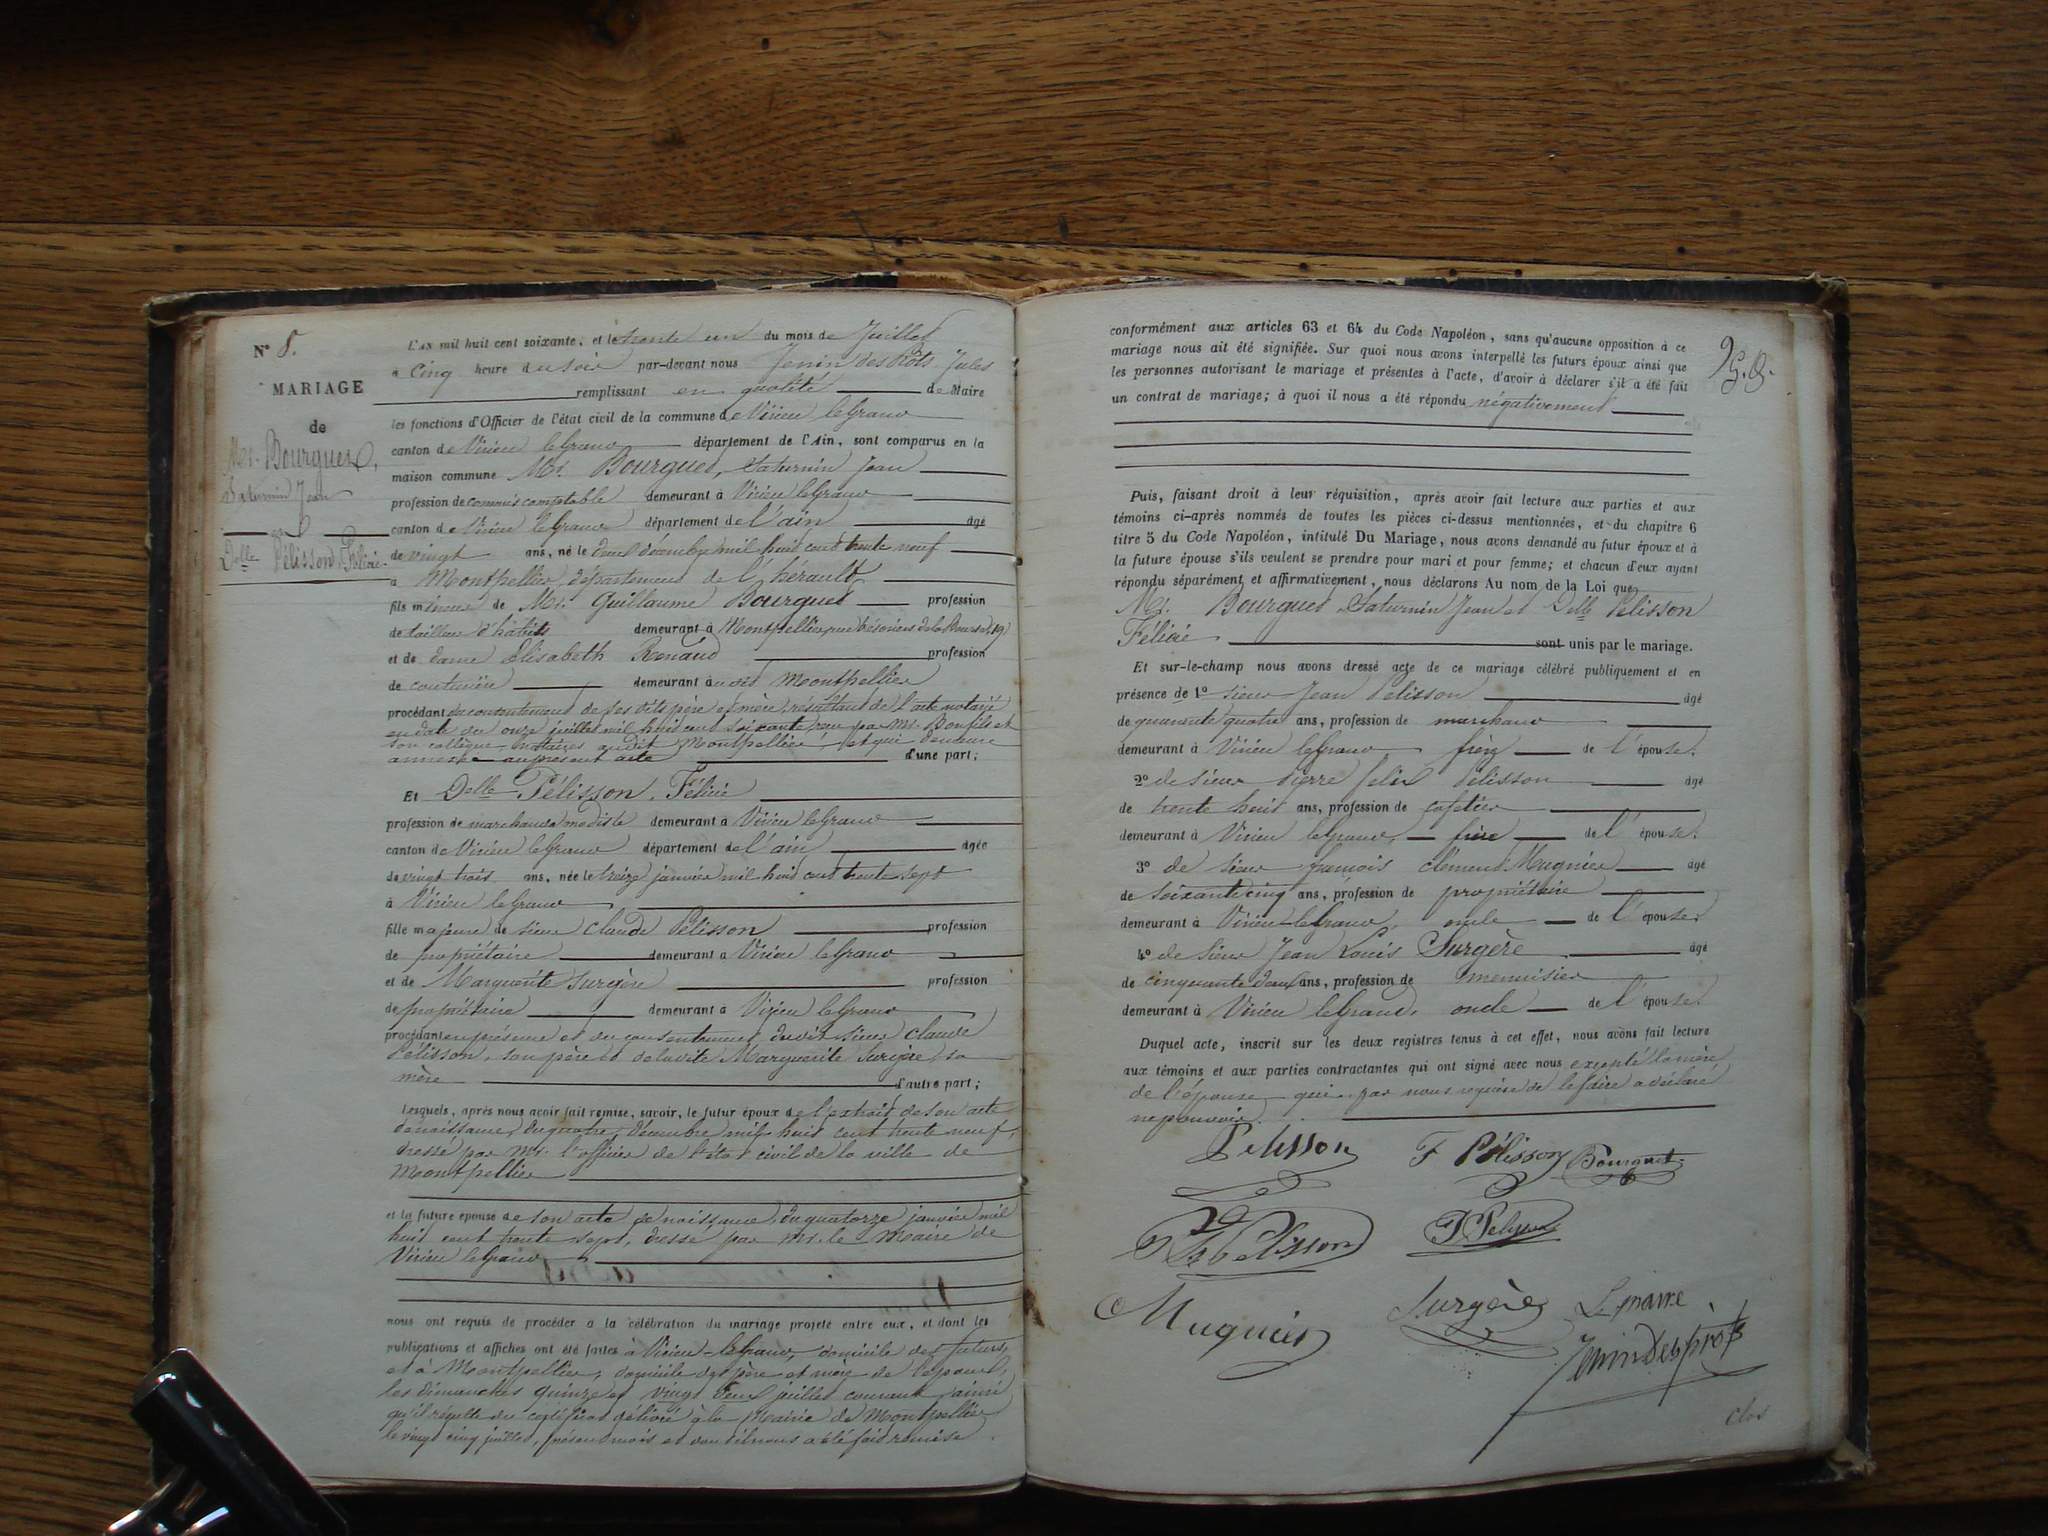 N° 8.
MARIAGE
de
Mr. Bourgues,
Saturnin Jean
et
Delle Pélisson Félicie.
L'AN mil huit cent soixante, et le trente un du mois de Juillet
à Cinq heure du soir par-devant nous Jenin des Prots Jules
remplissant en qualité de Maire
les fonctions d'Officier de l'état civil de la commune de Virieu leGrand
canton de Virieu leGrand département de l'Ain, sont comparus en la
maison commune Mr. Bourgues, Saturnin Jean
profession de commis comptable demeurant à Virieu leGrand
canton de Virieu leGrand département de l'ain âgé
de vingt ans, né le deux décembre mil huit cent trente neuf
à Montpellier, département de l'hérault,
fils mineur de Mr. Guillaume Bourgues profession
de tailleur d'habits demeurant à Montpellier, rue trésoriers de la Bourse, 19
et de dame Elisabeth Renaud profession
de couturière demeurant à Montpellier
procédant du contentement de ses dits père et mère, résultant de l'acte notarié
en date du onze juillet mil huit cent soixante, reçu par Mr. Bonfils et
son collègue notaires audit Montpellier, et qui demeure
annexé au présent acte d'une part;
Et Delle Pélisson, Félicie
profession de marchande modiste demeurant à Virieu leGrand
canton de Virieu leGrand département de l'ain âgée
de vingt trois ans, née le treize janvier mil huit cent trente sept
à Virieu leGrand
fille majeure de sieur Claude Pélisson profession
de propriétaire demeurant à Virieu leGrand
et de Marguerite Surgère profession
de propriétaire demeurant à Virieu leGrand
procédant en présence et du consentement dudit sieur Claude
Pélisson, son père et de ladite Marguerite Surgère, sa
mère d'autre part;
Lesquels, après nous avoir fait remise, savoir, le futur époux de l'extrait de son acte
de naissance, du quatre décembre mil huit cent trente neuf,
dressé par Mr. l'officier de l'état civil de la ville de
Montpellier
et la future épouse de son acte de naissance, du quatorze janvier mil
huit cent trente sept, dressé par Mr. le Maire de
Virieu leGrand
nous ont requis de procéder à la célébration du mariage projeté entre eux, et dont les
publications et affiches ont été faites à Virieu-leGrand, domicile des futurs,
et à Montpellier, domicile des père et mère de l'époux,
les dimanches quinze et vingt deux juillet courant, ainsi
qu'il résulte du certificat délivré à la Mairie de Montpellier
le vingt cinq juillet, présent mois et dont il nous a été fait remise.
conformément aux articles 63 et 64 du Code Napoléon, sans qu'aucune opposition à ce
mariage nous ait été signifiée. Sur quoi nous avons interpellé les futurs époux ainsi que
les personnes autorisant le mariage et présentes à l'acte, d'avoir à déclarer s'il a été fait
un contrat de mariage; à quoi il nous a été répondu négativement
Puis, faisant droit à leur réquisition, après avoir fait lecture aux parties et aux
témoins ci-après nommés de toutes les pièces ci-dessus mentionnées, et du chapitre 6
titre 5 du Code Napoléon, intitulé Du Mariage, nous avons demandé au futur époux et à
la future épouse s'ils veulent se prendre pour mari et pour femme; et chacun d'eux ayant
répondu séparément et affirmativement, nous déclarons Au nom de la Loi que
Mr. Bourgues Saturnin Jean et Delle Pélisson
Félicie sont unis par le mariage.
Et sur-le-champ nous avons dressé acte de ce mariage célébré publiquement et en
présence de 1° sieur Jean Pélisson âgé
de quarante quatre ans, profession de marchand
demeurant à Virieu leGrand frère de l'épouse.
2° de sieur Pierre félix Pélisson âgé
de trente huit ans, profession de cafetier
demeurant à Virieu leGrand, frère de l'épouse.
3° de sieur françois clément Mugnier âgé
de soixante cinq ans, profession de propriétaire
demeurant à Virieu-leGrand, oncle de l'épouse.
4° de sieur Jean Louis Surgère âgé
de cinquante deux ans, profession de menuisier
demeurant à Virieu leGrand, oncle de l'épouse.
Duquel acte, inscrit sur les deux registres tenus à cet effet, nous avons fait lecture
aux témoins et aux parties contractantes qui ont signé avec nous excepté la mère
de l'épouse qui par nous requise de le faire a déclaré
ne pouvoir.
Pelisson F Pélisson Bourguet
Pelisson J Pelisson
Mugnier Surgère Le maire
Jenin des prots
clos